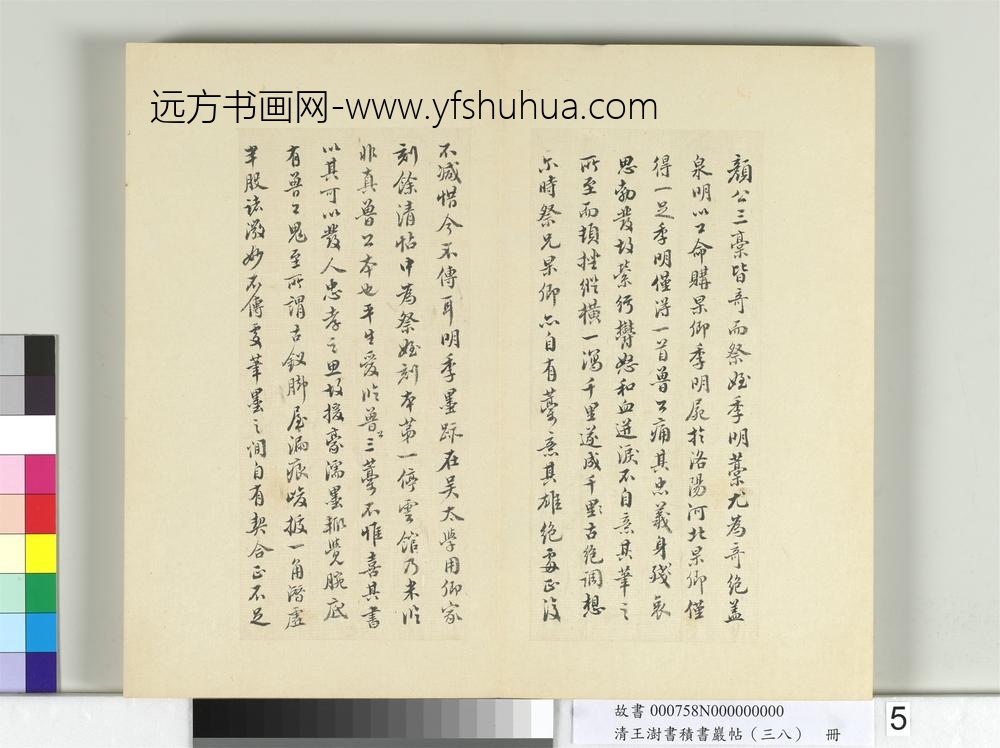 远方书画网-www.yfshuhua.com
顏公三稾皆奇而祭姪季明藁尤為奇絶蓋
泉明以公命購杲卿季明屍於洛陽河北杲卿僅
得一足季明僅得一首魯公痛其忠義身殘哀
思勃發故縈紆鬱怒和血迸淚不自意其筆之
所至而頓挫縱橫一瀉千里遂成千古絶調想
尔時祭兄杲卿亦自有藁意其雄絶處正復
不減惜今不傳耳明季墨跡在吳太學用卿家
刻餘清帖中為祭姪刻本第一停雲館乃米臨
非真魯公本也平生愛臨魯公三藁不惟喜其書
以其可以發人忠孝之思故援豪濡墨輒覺腕底
有魯公鬼至所謂古釵腳屋漏痕畯拔一角潛虛
半股諸微妙不傳處筆墨之間自有契合正不足
故書 000758N000000000
清王澍書積書巖帖（三八） 冊
5